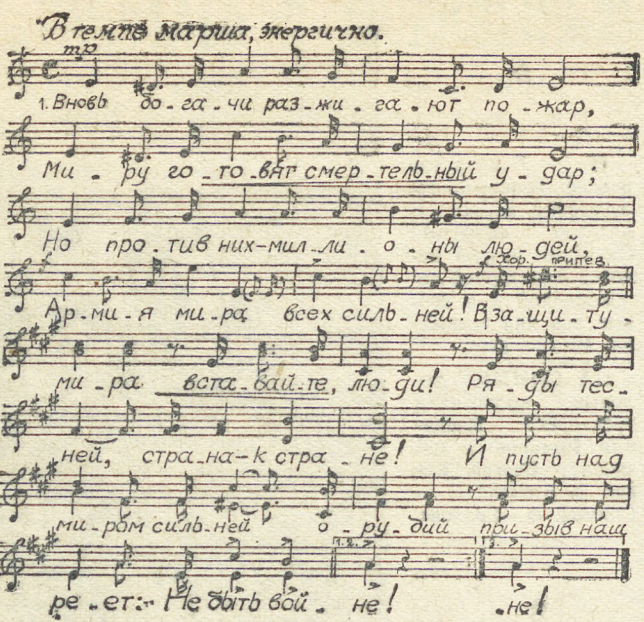 В темпе марша, энергично.
mp
1. Вновь бо-га-чи раз-жи-га-ют по-жар,
Ми-ру го-то-вят смер-тель-ный у-дар;
Но про-тив них-мил-ли-о-ны лю-дей,
f f хор. припев
Ар-ми-я ми-ра всех силь-ней! В за-щи-ту-
ми-ра вста-вай-те, лю-ди! Ря-ды тес-
ней, стра-на-к стра-не! И пусть над
ми-ром силь-ней о-ру-дий при-зыв наш
1.2. 3.
ре-ет:- Не быть вой-не! -не!